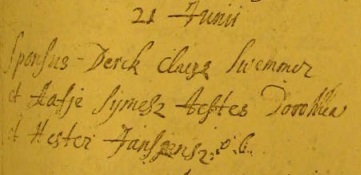 21 Junii
Sponsus - Derck Claesz Swemmer
et Aafje Sijmesz testes Dorothea
et Hester Jansens: p. b.